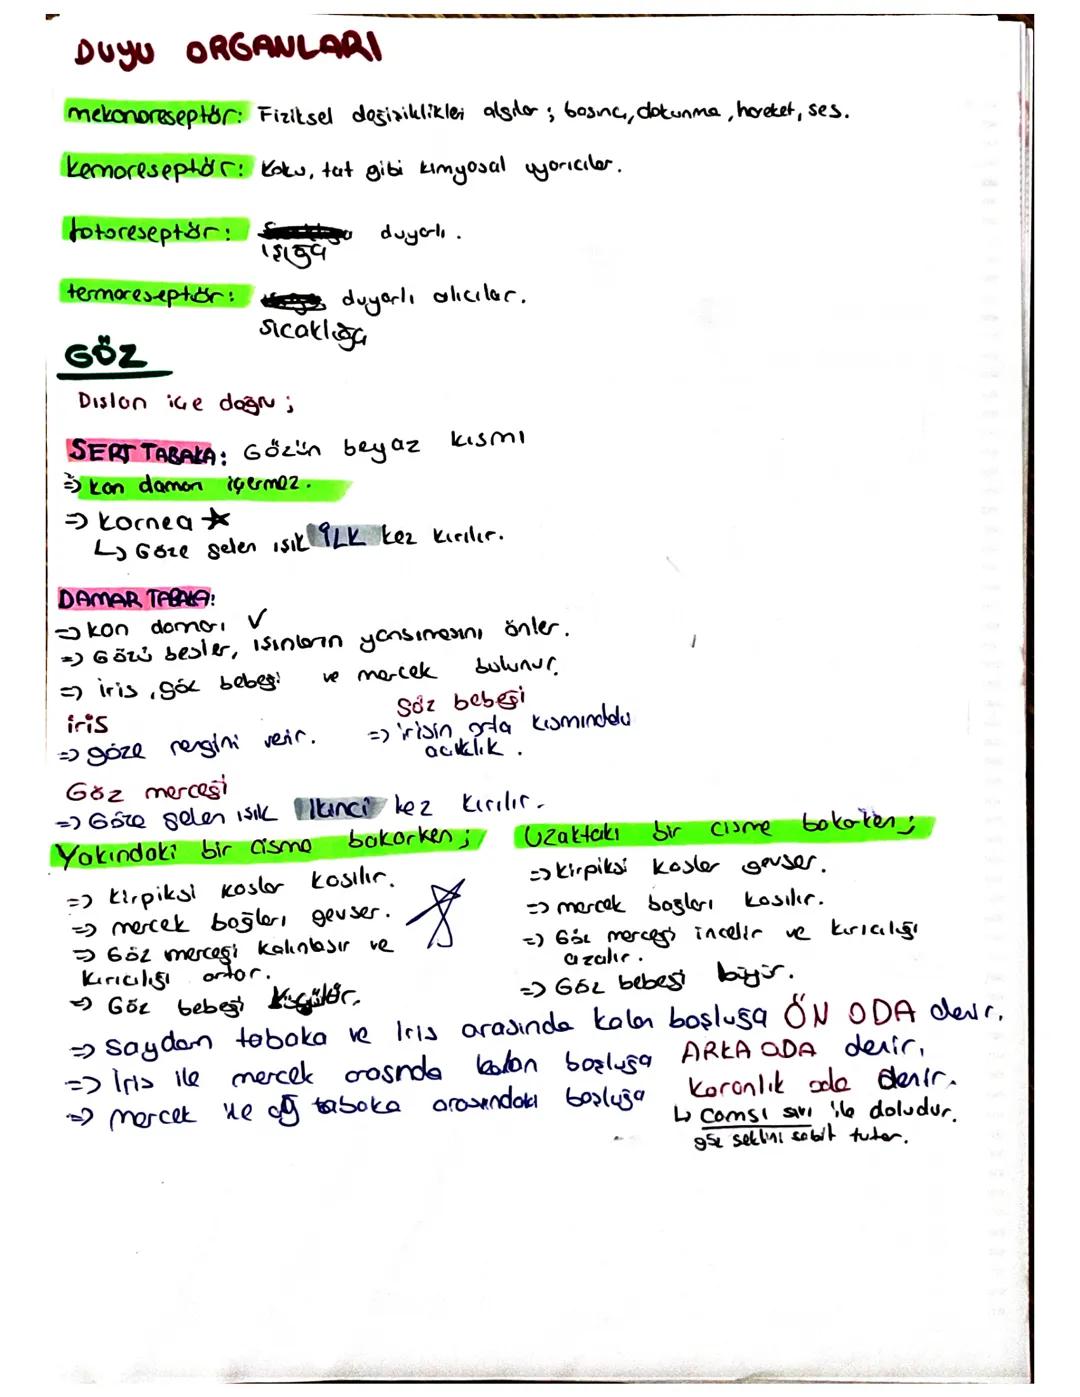 DUYU ORGANLARI
mekanoreseptör: Fiziksel değişiklikleri algılar ; basınç, dokunma, hareket, ses.
kemoreseptör: Koku, tat gibi kimyasal uyarıcılar.
fotoreseptör: duyarlı.
ışığa
termoreseptör: duyarlı alıcılar.
sıcaklığa
GÖZ
Dıştan içe doğru ;
SERT TABAKA: Gözün beyaz kısmı
=> kan damarı içermez.
=> kornea ☆
↳ Göze gelen ışık İLK kez kırılır.
DAMAR TABAKA:
=> kan damarı ✓
=> Gözü besler, ışınların yansımasını önler.
=> iris, göz bebeği ve mercek bulunur.
iris göz bebeği
=> göze rengini verir. => irisin orta kısmındaki
açıklık.
Göz merceği
=> Göze gelen ışık ikinci kez kırılır.
Yakındaki bir cisme bakarken ; Uzaktaki bir cisme bakarken ;
=> kirpiksi kaslar kasılır. => kirpiksi kaslar gevşer.
=> mercek bağları gevşer. => mercek bağları kasılır.
=> Göz merceği kalınlaşır ve => Göz merceği incelir ve kırıcılığı
kırıcılığı artar. azalır.
=> Göz bebeği küçülür. => Göz bebeği büyür.
=> saydam tabaka ve iris arasında kalan boşluğa ÖN ODA denir.
=> İris ile mercek arasında kalan boşluğa ARKA ODA denir.
=> mercek ile ağ tabaka arasındaki boşluğa karanlık oda denir.
↳ camsı sıvı ile doludur.
göz şeklini sabit tutar.